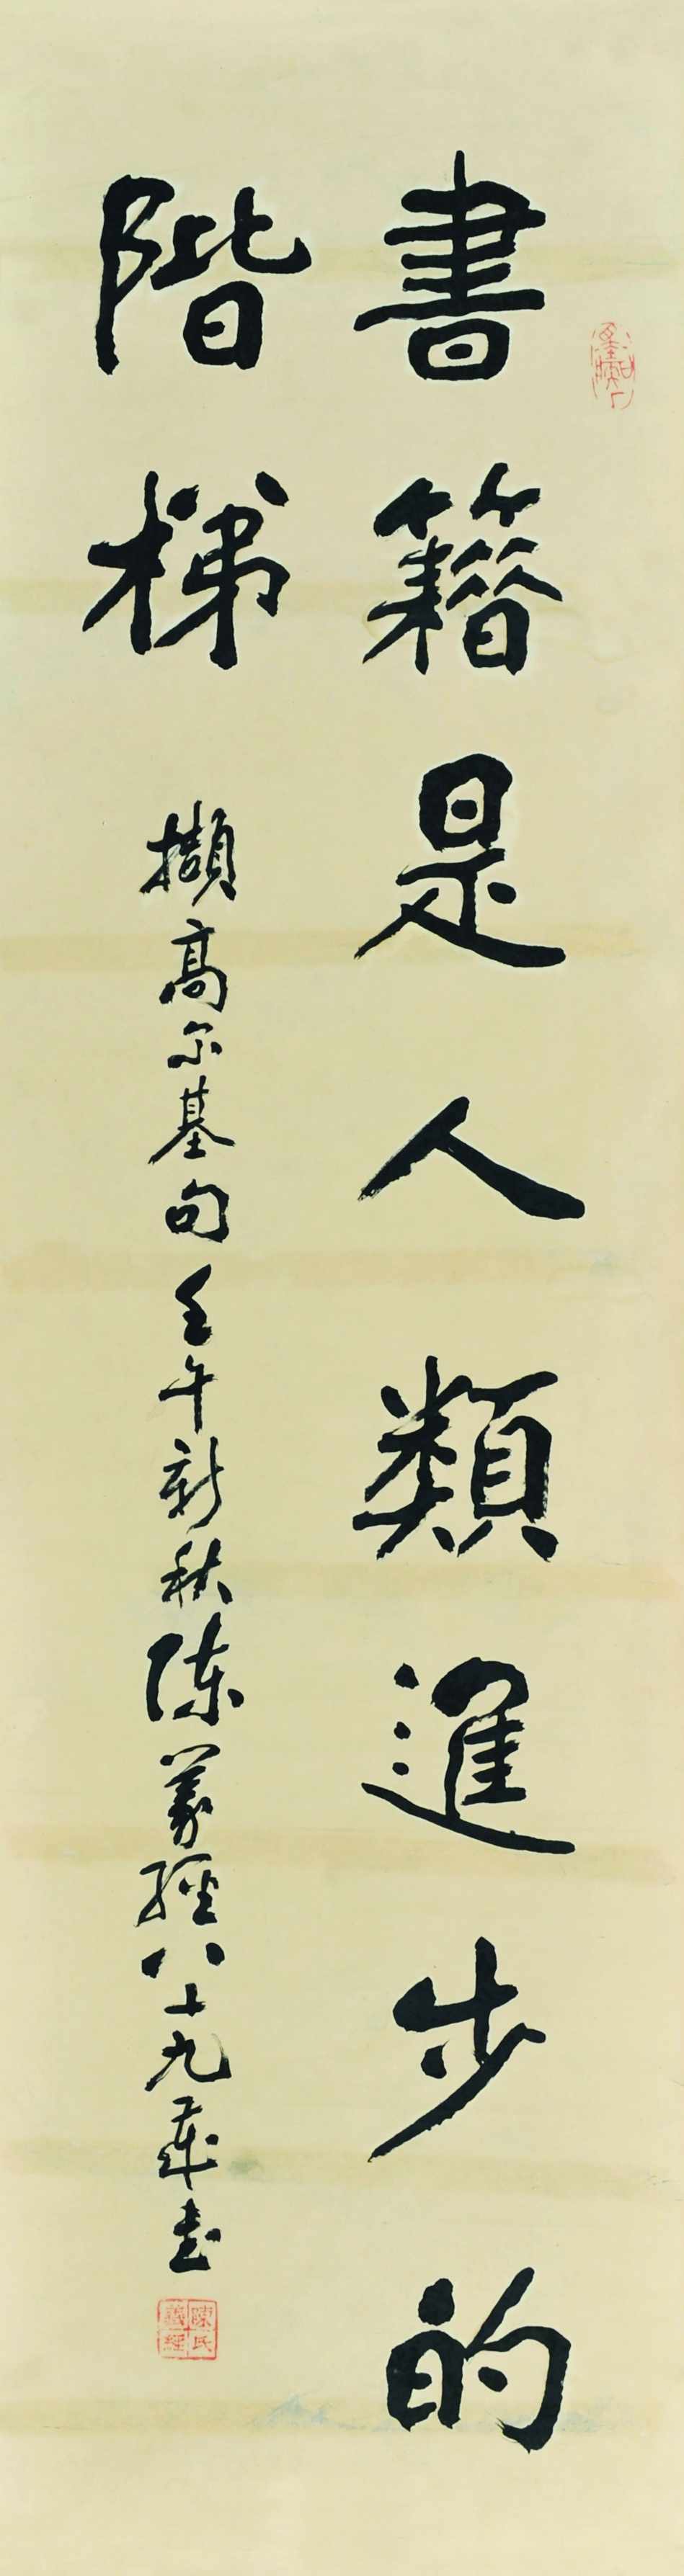 書籍是人類進步的
階梯
擷高尔基句壬午新秋陈義經八十九歲书
陳氏義經